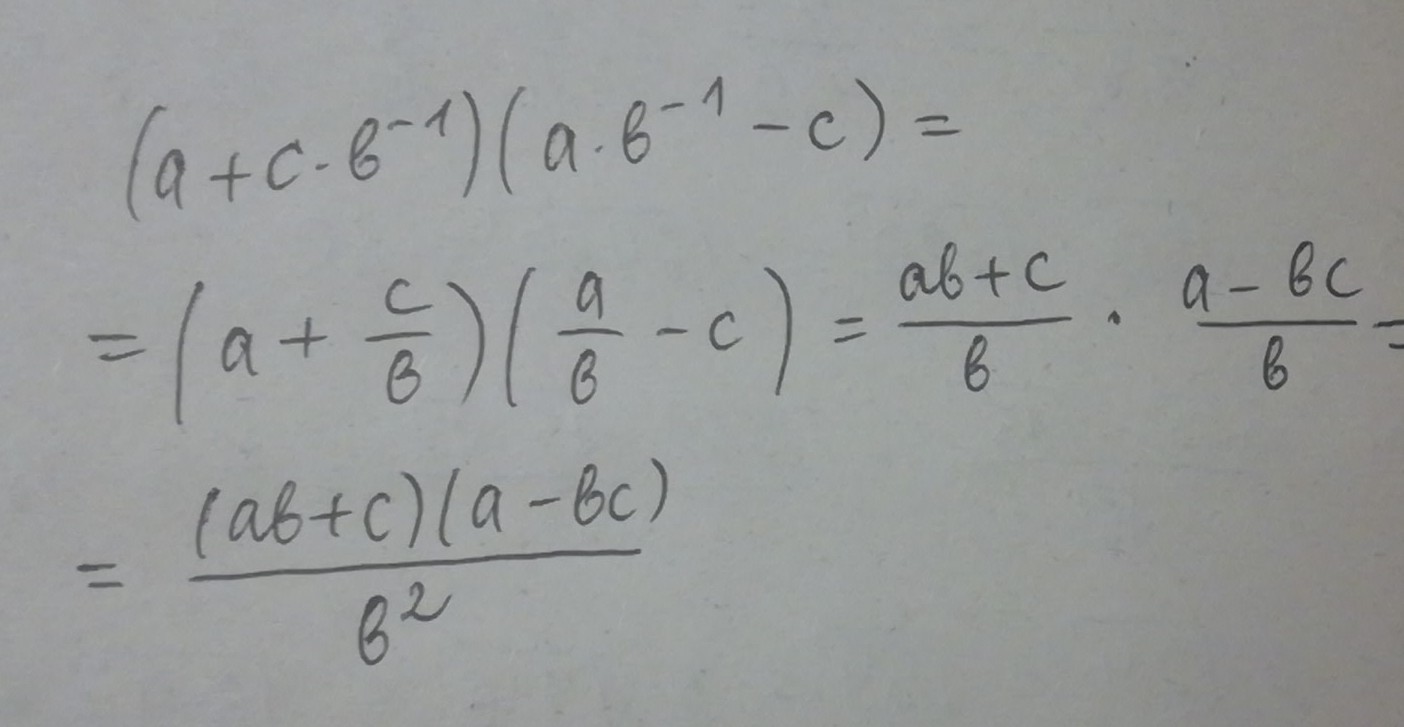 (a + c · b⁻¹)(a · b⁻¹ − c) =
= (a + c/b)(a/b − c) = (ab + c)/b · (a − bc)/b =
= (ab + c)(a − bc)/b²